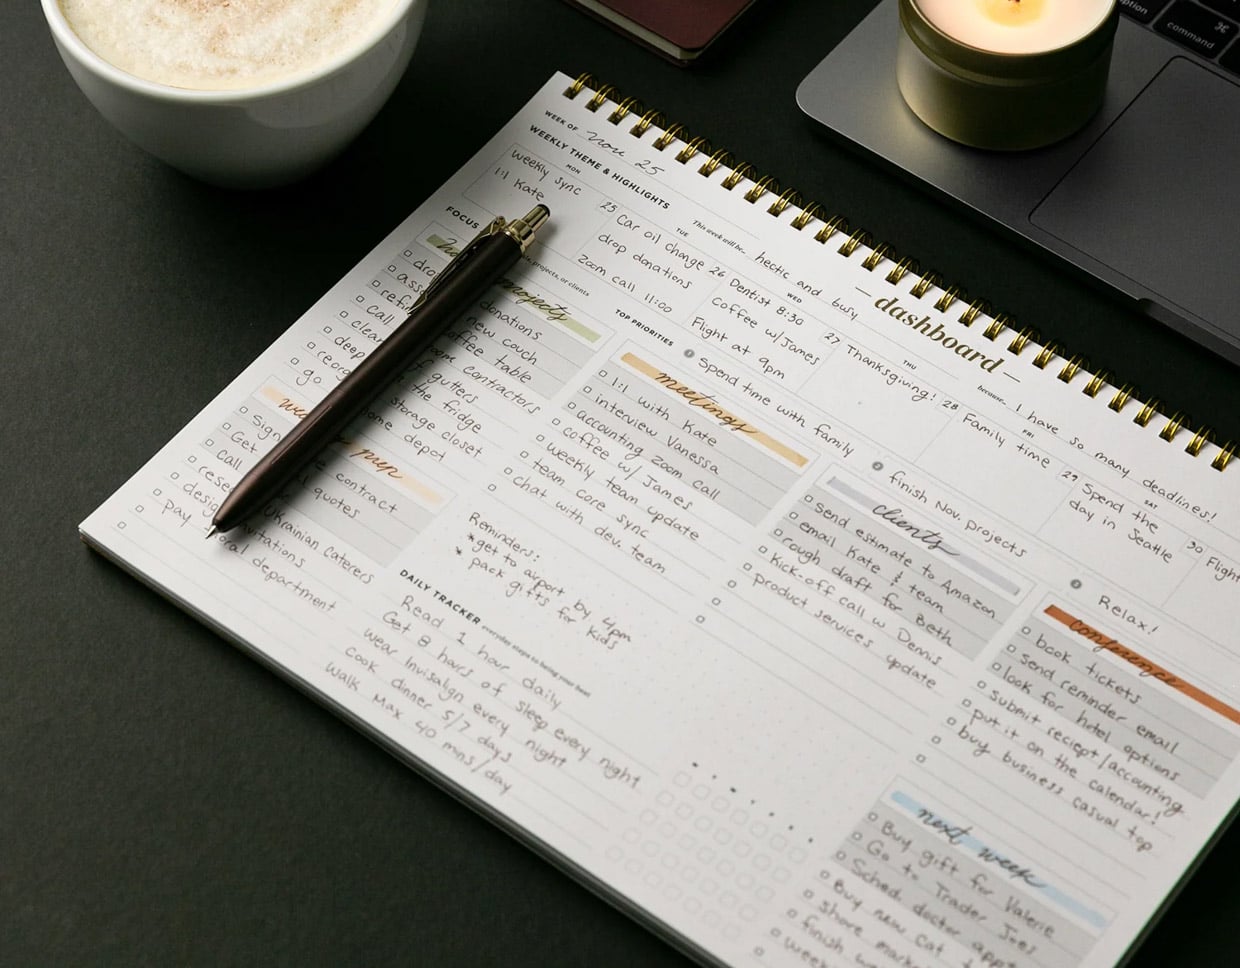 option
command
WEEK OF Nov 25
WEEKLY THEME & HIGHLIGHTS
This week will be... hectic and busy
— dashboard —
because... I have so many deadlines!
MON
Weekly Sync
1:1 Kate
25
TUE
Car oil change
drop donations
Zoom call 11:00
26
WED
Dentist 8:30
Coffee w/James
Flight at 9pm
27
THU
Thanksgiving!
28
FRI
Family time
29
SAT
Spend the
day in Seattle
30
Flight
FOCUS
projects, or clients
TOP PRIORITIES
1 Spend time with family
2 finish Nov. projects
3 Relax!
projects
donations
new couch
coffee table
contractors
gutters
the fridge
storage closet
home depot
prep
Sign contract
Get quotes
Call Ukrainian caterers
department
meetings
1:1 with Kate
interview Vanessa
accounting zoom call
coffee w/ James
weekly team update
team core sync
chat with dev. team
clients
send estimate to Amazon
email Kate & team
rough draft for Beth
Kick-off call w Dennis
product services update
conference
book tickets
send reminder email
look for hotel options
submit reciept/accounting
put it on the calendar!
buy business casual top
Reminders:
* get to airport by 4pm
* pack gifts for kids
DAILY TRACKER everyday steps to being your best
Read 1 hour daily
Get 8 hours of sleep every night
wear Invisalign every night
cook dinner 5/7 days
walk Max 40 mins/day
next week
Buy gift for Valerie
Go to Trader Joes
Sched. doctor appt
Buy new cat
share
finish